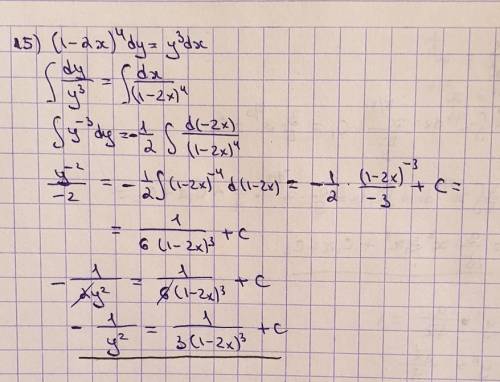 15) (1-2x)⁴dy = y³dx
∫ dy/y³ = ∫ dx/(1-2x)⁴
∫ y⁻³dy = -1/2 ∫ d(-2x)/(1-2x)⁴
y⁻²/-2 = -1/2 ∫ (1-2x)⁻⁴ d(1-2x) = -1/2 · (1-2x)⁻³/-3 + C =
= 1/6(1-2x)³ + C
- 1/2y² = 1/6(1-2x)³ + C
- 1/y² = 1/3(1-2x)³ + C